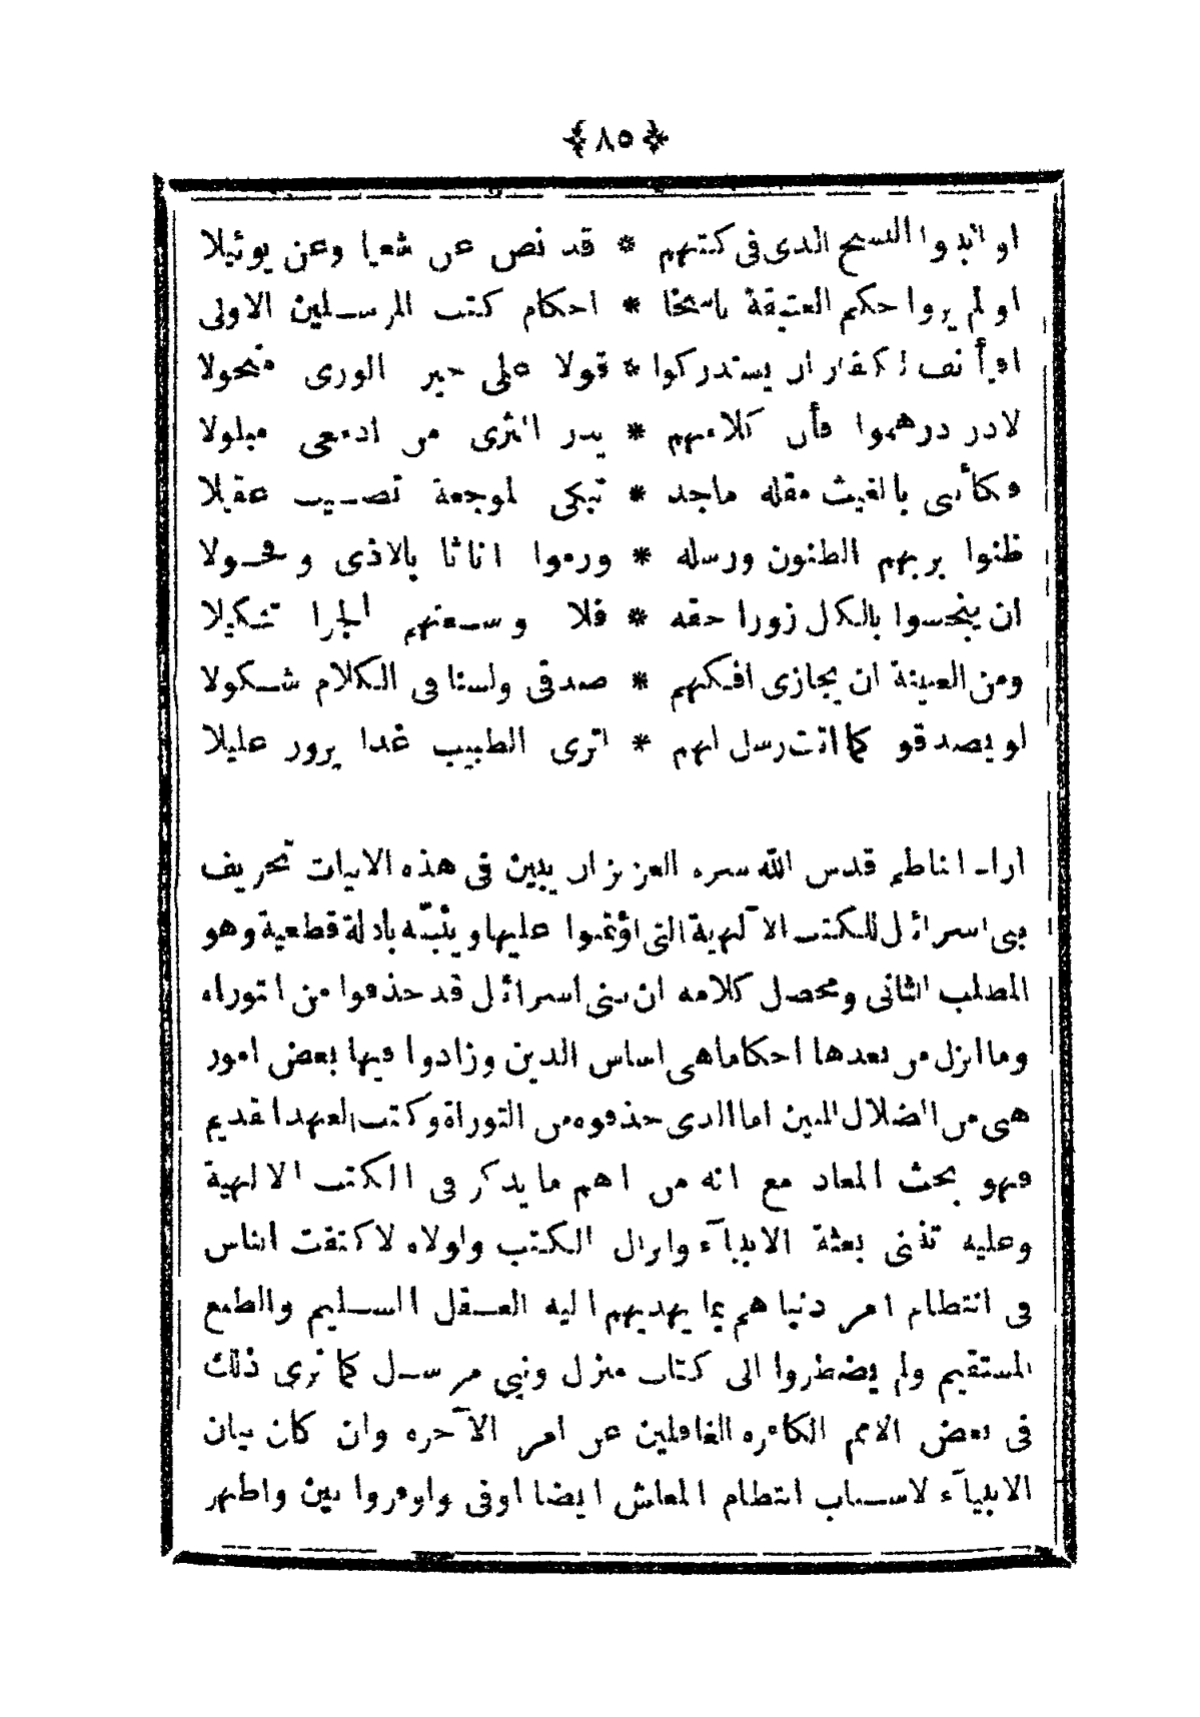 ﴿ ٨٥ ﴾
او اثبتوا النسخ الذى فى كتبهم * قد نص عن شعيا وعن يوئيلا
او لم يروا حكم العتيقة ناسخا * احكام كتب المرسلين الاولى
الكفار ان يستدركوا * قولا على خير الورى منحولا
لا در درهموا فأن كلامهم * يذر الثرى من ادمعى مبلولا
فكأننى بالغيث مقله ماجد * تبكى لموجعة تصيب عقيلا
ظنوا بربهم الظنون ورسله * ورموا اناثا بالاذى وفحولا
ان ينجسوا بالكل زورا حقه * فلا وسعتهم الجزا تنكيلا
ومن العينة ان يجازى افكهم * صدقى ولسنا فى الكلام شكولا
لو يصدقو كما اتت رسل لهم * اترى الطبيب غدا يزور عليلا
اراد الناظم قدس الله سره العزيز ان يبين فى هذه الابيات تحريف
بنى اسرائل للكتب الآلهية التى اؤتمنوا عليها ويثبته بأدلة قطعية وهو
المطلب الثانى ومحصل كلامه ان بنى اسرائل قد حذفوا من التوراة
وما انزل من بعدها احكاما هى اساس الدين وزادوا فيها بعض امور
هى من الضلال المبين اما الذى حذفوه من التوراة وكتب العهد القديم
فهو بحث المعاد مع انه من اهم ما يذكر فى الكتب الالهية
وعليه تبنى بعثة الانبيآء وانزال الكتب ولولاه لاكتفت الناس
فى انتظام امر دنياهم بما يهديهم اليه العقل السليم والطبع
المستقيم ولم يضطروا الى كتاب منزل ونبى مرسل كما ترى ذلك
فى بعض الامم الكافره الغافلين عن امر الآخره وان كان بيان
الانبيآء لاسباب انتظام المعاش ايضا اوفى واوفروابين واظهر